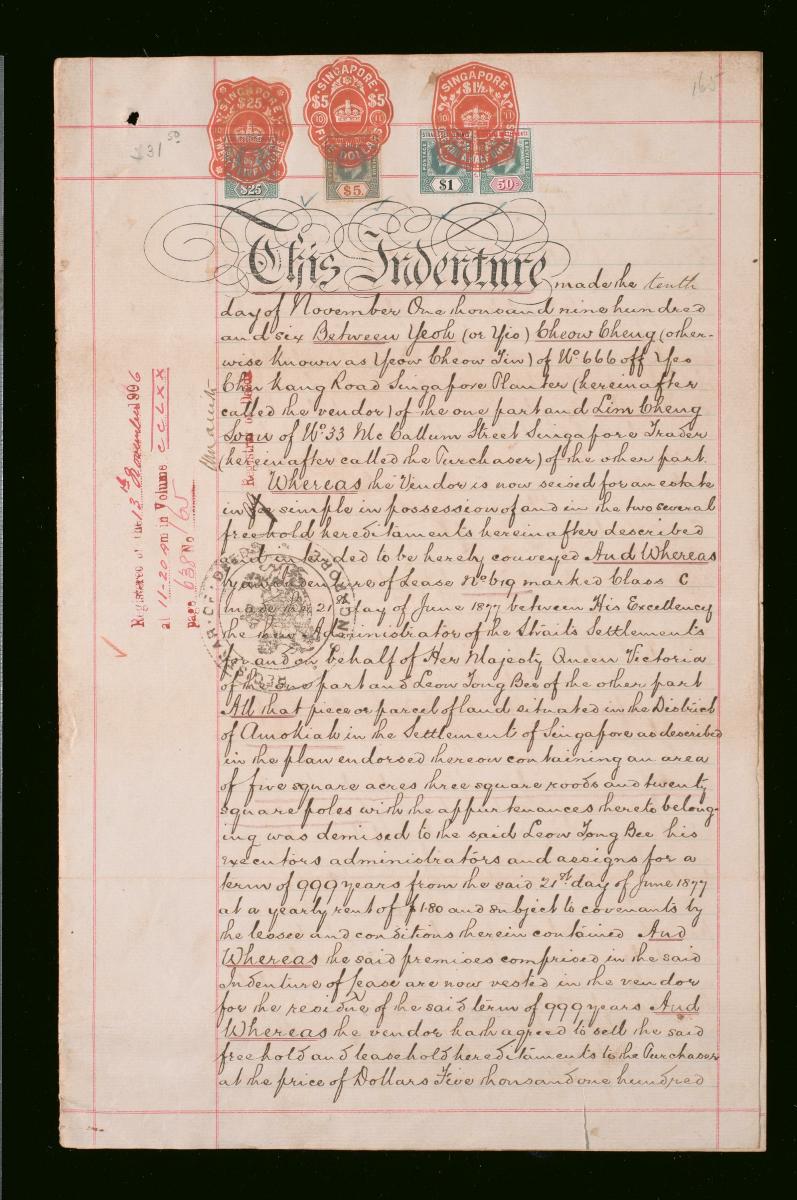 165
$31 50
SINGAPORE
$25
$25
SINGAPORE
$5 $5
FIVE DOLLARS
$5.
SINGAPORE
$1½
$1
50c
This Indenture made the tenth
day of November One thousand nine hundred
and six Between Yeoh (or Yio) Cheow Cheng (other-
wise known as Yeow Cheow Tin) of No 666 off Yeo
Chu Kang Road Singapore Planter (hereinafter
called the vendor) of the one part and Lim Cheng
Soon of No 33 McCallum Street Singapore Trader
(hereinafter called the Purchaser) of the other part.
Whereas the Vendor is now seized for an estate
in fee simple in possession of and in the two several
freehold hereditaments hereinafter described
and intended to be hereby conveyed And Whereas
by an Indenture of Lease No 619 marked Class C
made the 21st day of June 1877 between His Excellency
the then Administrator of the Straits Settlements
for and on behalf of Her Majesty Queen Victoria
of the one part and Leow Tong Bee of the other part
All that piece or parcel of land situated in the District
of Amokiah in the Settlement of Singapore as described
in the plan endorsed thereon containing an area
of five square acres three square roods and twenty
square poles with the appurtenances thereto belong-
ing was demised to the said Leow Tong Bee his
executors administrators and assigns for a
term of 999 years from the said 21st day of June 1877
at a yearly rent of $1.80 and subject to covenants by
the lessee and conditions therein contained And
Whereas the said premises comprised in the said
Indenture of Lease are now vested in the vendor
for the residue of the said term of 999 years And
Whereas the vendor hath agreed to sell the said
freehold and leasehold hereditaments to the Purchaser
at the price of Dollars Five thousand one hundred
Registered on the 13th November 1906
at 11-20 am in Volume CCLXX
page 638 No 165
Registrar of Deeds
REGISTRAR OF DEEDS SINGAPORE